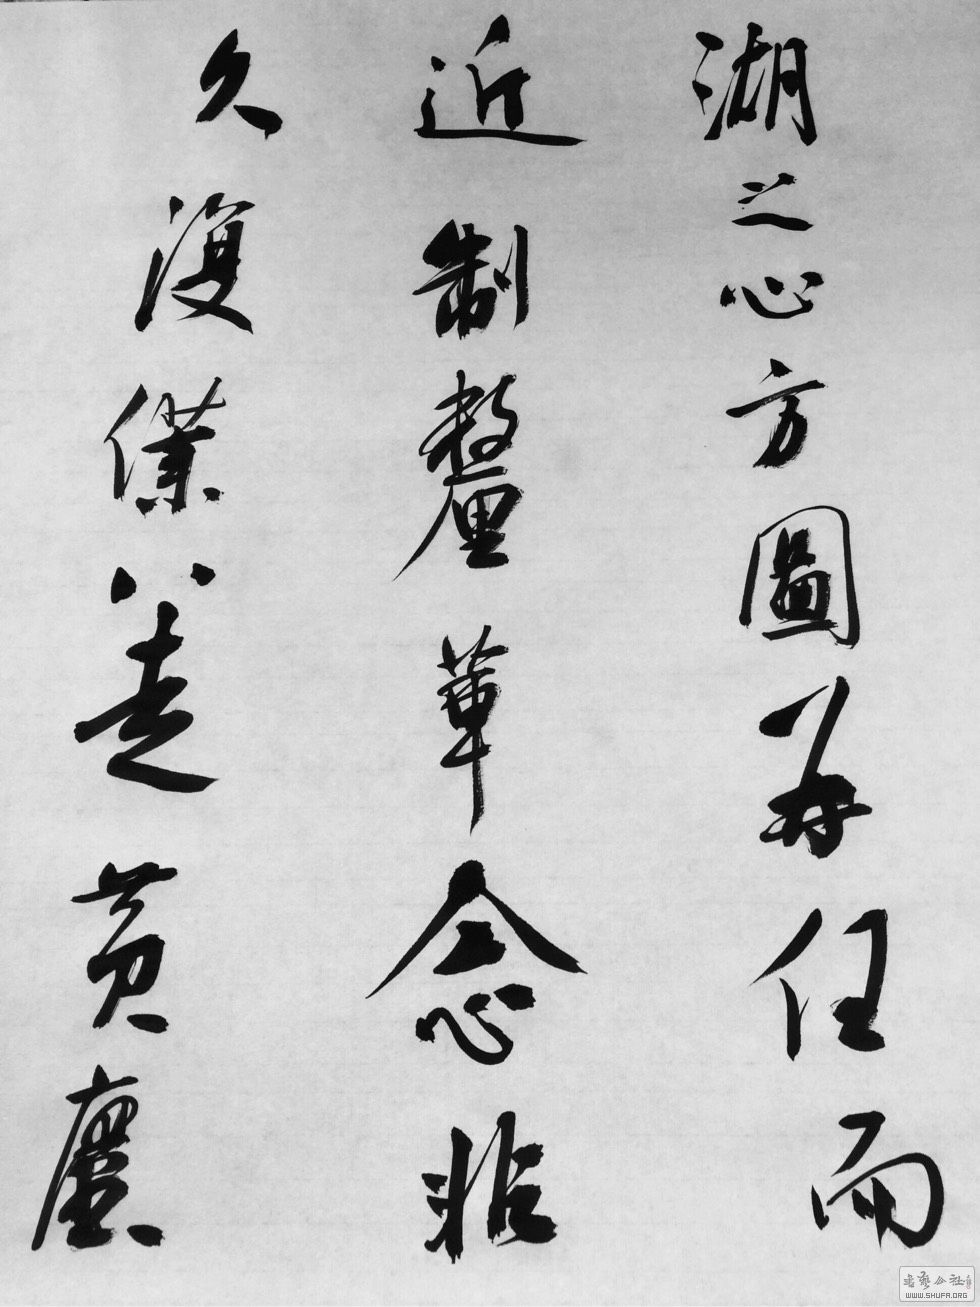 湖之心方圖再任而
近制釐革念非
久復僕〻走黃塵
書藝公社
WWW.SHUFA.ORG